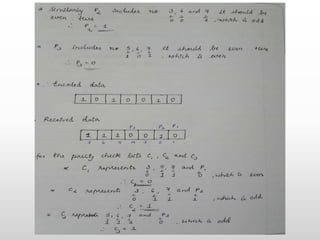 * Similarly P2 includes no 3, 6 and 7 It should be
even here 0 0 1 , which is odd
∴ P2 = 1
* P3 includes no 5, 6, 7 It should be even here
1 0 1 , which is even
∴ P3 = 0
* ∴ Encoded data
1 0 1 0 0 1 0
Received data
P3 P2 P1
1 1 1 0 0 1 0
7 6 5 4 3 2 1
for the parity check bits C1, C2 and C3
* C1 represents 3, 5, 7 and P1
0 1 1 0 , which is even
∴ C1 = 0
* C2 represents 3, 6, 7 and P2
0 1 1 1 , which is odd
∴ C2 = 1
* C3 represents 5, 6, 7 and P3
1 1 1 0 , which is odd
∴ C3 = 1